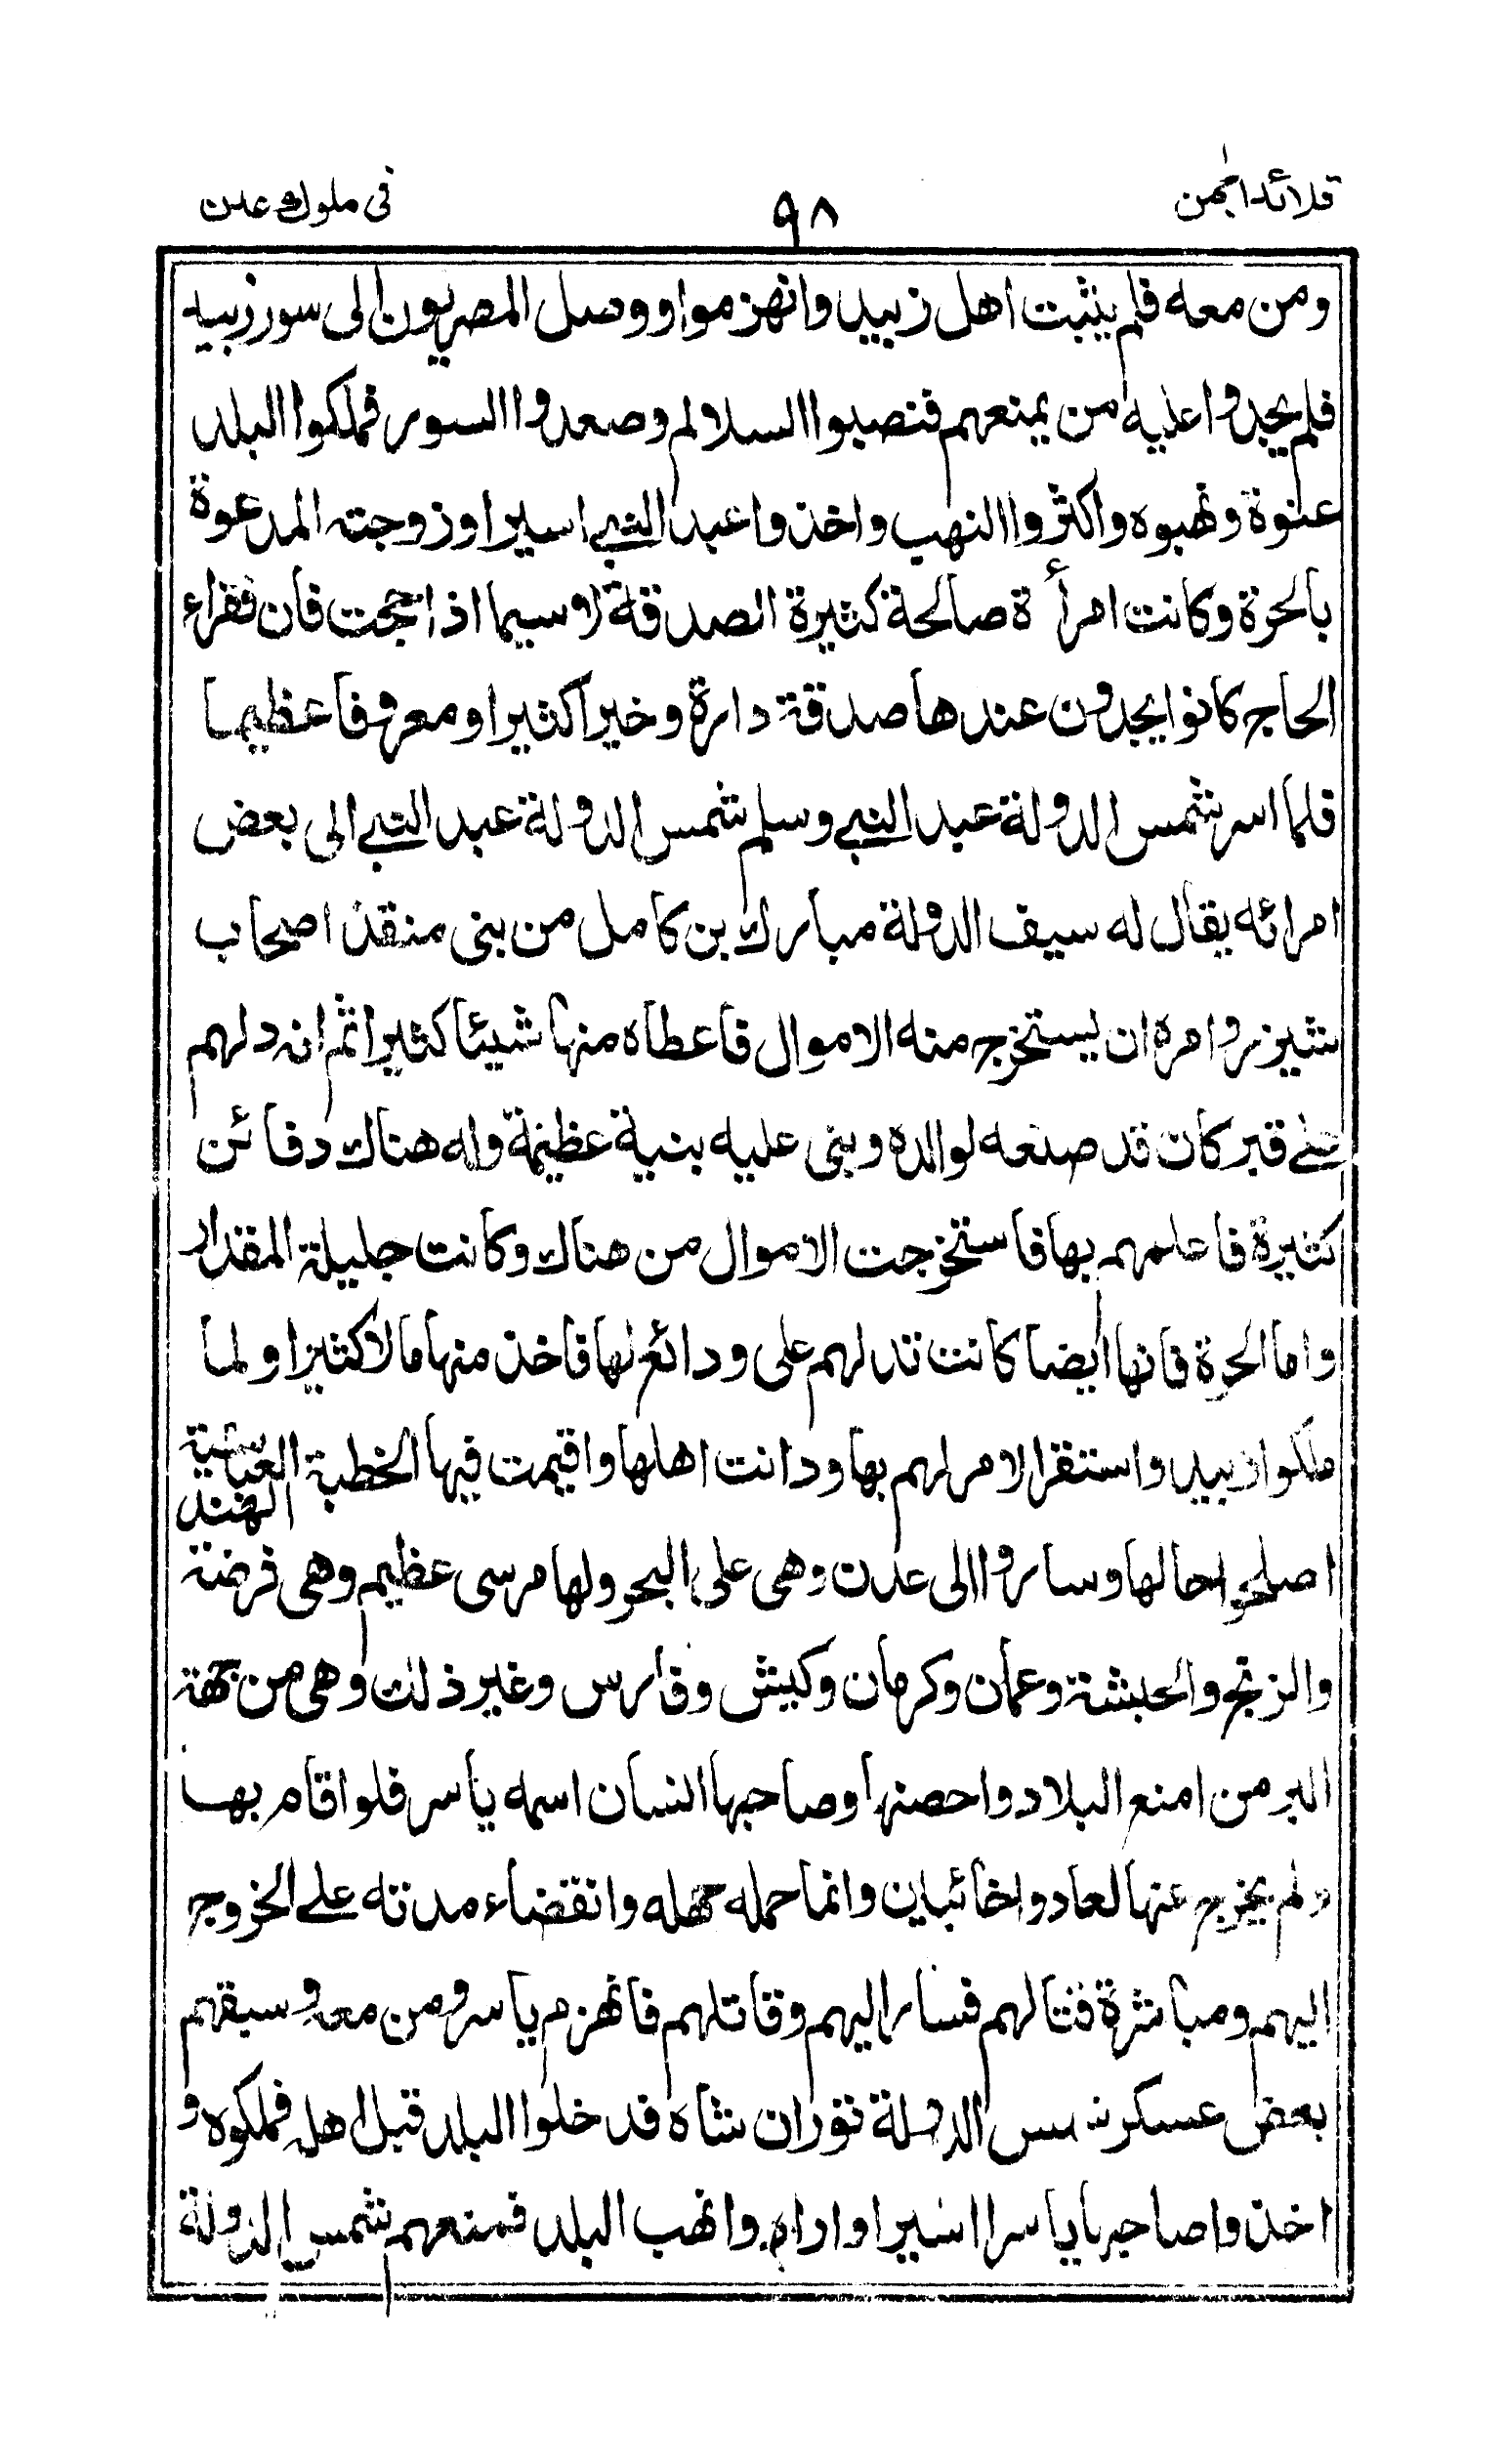 قلائد الجمن
٩٨
فى ملوك عدن
ومن معه فلم يثبت اهل زبيد وانهزموا ووصل المصريون الى سور زبيد
فلم يجدوا عليه من يمنعهم فنصبوا السلالم وصعدوا السور فملكوا البلد
عنوة ونهبوه واكثروا النهب واخذوا عبد النبي اسيرا وزوجته المدعوة
بالحرة وكانت امرأة صالحة كثيرة الصدقة لا سيما اذا حجت فان فقراء
الحاج كانوا يجدون عندها صدقة دارة وخيرا كثيرا ومعروفا عظيما
فلما اسر شمس الدولة عبد النبي وسلم شمس الدولة عبد النبي الى بعض
امرائه يقال له سيف الدولة مبارك بن كامل من بنى منقذ اصحاب
شيزر وامره ان يستخرج منه الاموال فاعطاه منها شيئا كثيرا ثم انه دلهم
على قبر كان قد صنعه لوالده وبنى عليه بنية عظيمة وله هناك دفائن
كثيرة فاعلمهم بها فاستخرجت الاموال من هناك وكانت جليلة المقدار
واما الحرة فانها ايضا كانت تدلهم على ودائع لها فاخذ منها مالا كثيرا ولما
ملكوا زبيد واستقر الامر لهم بها ودانت اهلها واقيمت فيها الخطبة العباسية
اصلحوا حالها وساروا الى عدن وهى على البحر ولها مرسى عظيم وهى فرضة الهند
والزنج والحبشة وعمان وكرمان وكيش وفارس وغير ذلك وهى من جهة
البر من امنع البلاد واحصنها وصاحبها انسان اسمه ياسر فلو اقام بها
ولم يخرج عنها لعادوا خائبين وانما حمله جهله وانقضاء مدته على الخروج
اليهم ومباشرة قتالهم فسار اليهم وقاتلهم فانهزم ياسر ومن معه وسبقهم
بعض عسكر شمس الدولة توران شاه قد خلوا البلد قبل اهله فملكوه و
اخذوا صاحبها ياسرا اسيرا وارادوا نهب البلد فمنعهم شمس الدولة